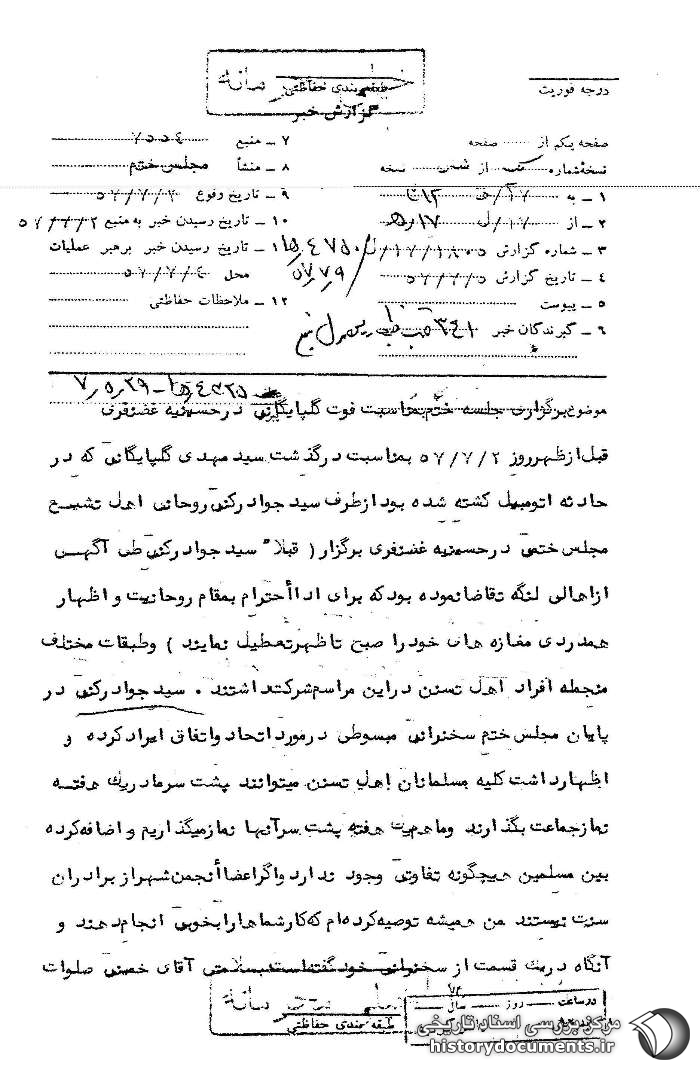 درجه فوریت
طبقه بندی حفاظتی
گزارش خبر
صفحه یکم از صفحه
نسخه شماره یک از شش نسخه
۱ ـ به
۲ ـ از ۱۷/ﻫ
۳ ـ شماره گزارش ۱۸۰۵/ ۱۷/ل
۴ ـ تاریخ گزارش ۵۷/۷/۵
۵ ـ پیوست
۶ ـ گیرندگان خبر ۳۴۱
۷ ـ منبع ۷۵۵۴
۸ ـ منشأ مجلس ختم
۹ ـ تاریخ وقوع ۵۷/۷/۲
۱۰ ـ تاریخ رسیدن خبر به منبع ۵۷/۷/۲
۱۱ ـ تاریخ رسیدن خبر برهبر عملیات
محل ۵۷/۷/۴
۱۲ ـ ملاحظات حفاظتی
۵۷/۷/۹
موضوع برگزاری جلسه ختم بمناسبت فوت گلپایگانی در حسینیه غضنفری
قبل از ظهر روز ۵۷/۷/۲ بمناسبت درگذشت سید مهدی گلپایگانی که در
حادثه اتومبیل کشته شده بود از طرف سید جواد رکنی روحانی اهل تشیع
مجلس ختمی در حسینیه غضنفری برگزار ( قبلا" سید جواد رکنی طی آگهی
از اهالی لنگه تقاضا نموده بود که برای اداأ احترام بمقام روحانیت و اظهار
همدردی مغازه های خود را صبح تا ظهر تعطیل نمایند ) و طبقات مختلف
منجمله افراد اهل تسنن در این مراسم شرکت داشتند . سید جواد رکنی در
پایان مجلس ختم سخنرانی مبسوطی در مورد اتحاد و اتفاق ایراد کرده و
اظهار داشت کلیه مسلمانان اهل تسنن میتوانند پشت سر ما در یک هفته
نماز جماعت بگذارند و ما هم یک هفته پشت سر آنها نماز میگذاریم و اضافه کرده
بین مسلمین هیچگونه تفاوتی وجود ندارد و اگر اعضاأ انجمن شهر از برادران
سنت نیستند من همیشه توصیه کرده ام که کار شماها را بخوبی انجام دهند و
آنگاه در یک قسمت از سخنرانی خود گفته است بسلامتی آقای خمینی صلوات
طبقه بندی حفاظتی
در ساعت روز سال
مرکز بررسی اسناد تاریخی
historydocuments.ir